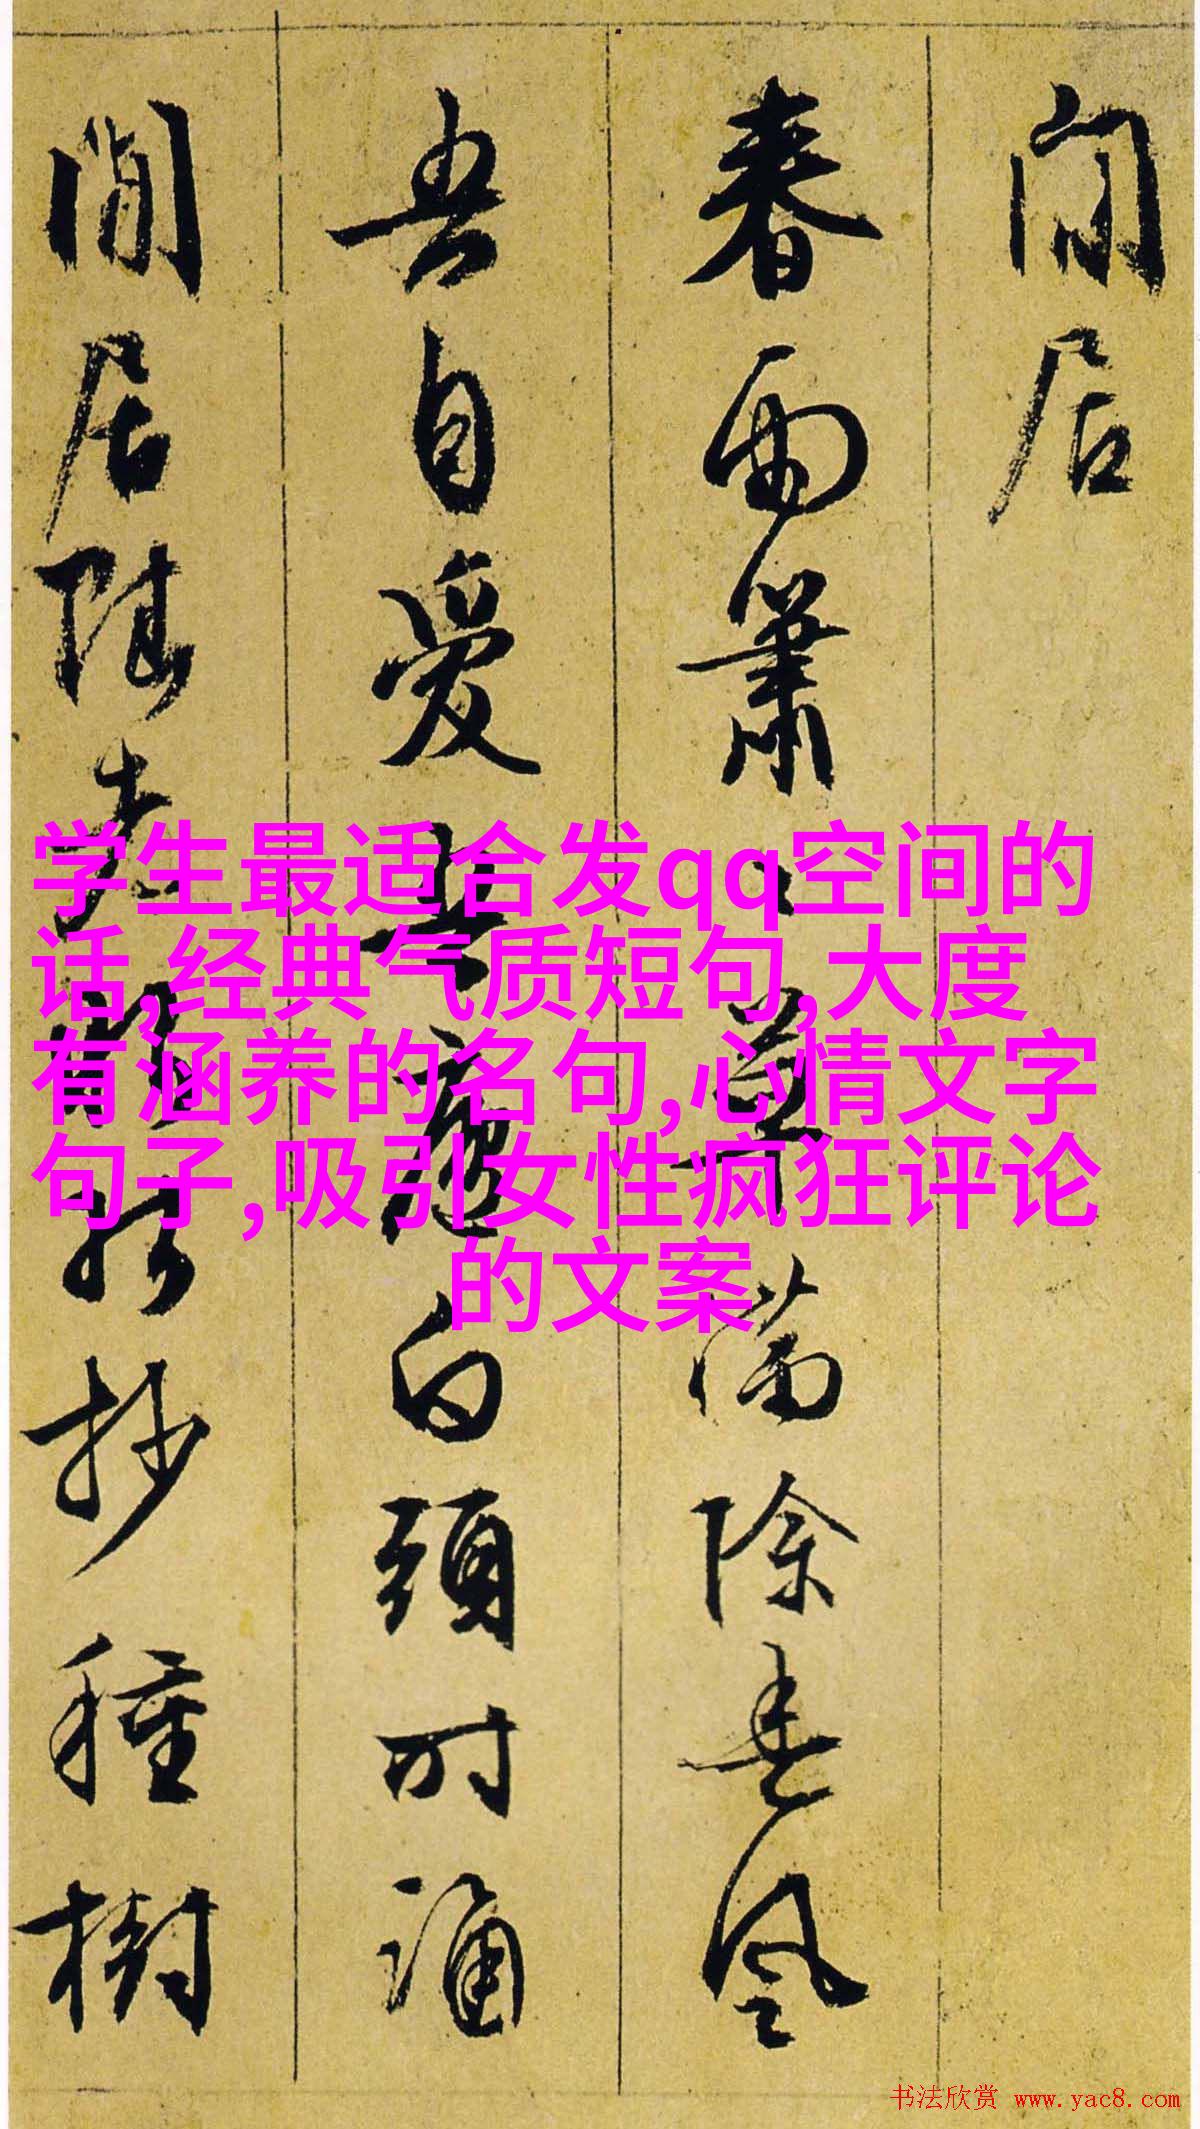 学生最适合发qq空间的
话,经典气质短句,大度
有涵养的名句,心情文字
句子,吸引女性疯狂评论
的文案
閒居
春雨蕭々草滿除春風
吾自愛吾廬白頭时誦
閒居老抄種樹
书法欣赏 www.yac8.com